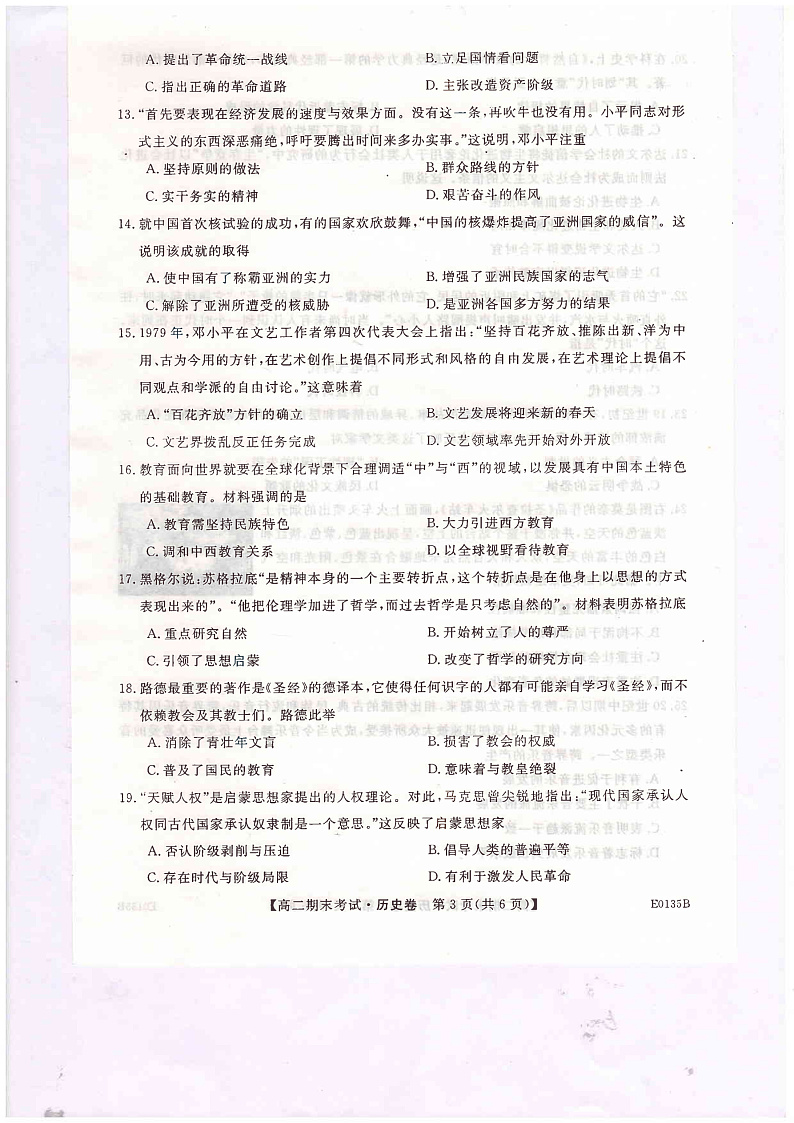 A. 提出了革命统一战线 B. 立足国情看问题
C. 指出正确的革命道路 D. 主张改造资产阶级
13. “首先要表现在经济发展的速度与效果方面。没有这一条,再吹牛也没有用。小平同志对形
式主义的东西深恶痛绝,呼吁要腾出时间来多办实事。”这说明,邓小平注重
A. 坚持原则的做法 B. 群众路线的方针
C. 实干务实的精神 D. 艰苦奋斗的作风
14. 就中国首次核试验的成功,有的国家欢欣鼓舞,“中国的核爆炸提高了亚洲国家的威信”。这
说明该成就的取得
A. 使中国有了称霸亚洲的实力 B. 增强了亚洲民族国家的志气
C. 解除了亚洲所遭受的核威胁 D. 是亚洲各国多方努力的结果
15. 1979年,邓小平在文艺工作者第四次代表大会上指出:“坚持百花齐放、推陈出新、洋为中
用、古为今用的方针,在艺术创作上提倡不同形式和风格的自由发展,在艺术理论上提倡不
同观点和学派的自由讨论。”这意味着
A. “百花齐放”方针的确立 B. 文艺发展将迎来新的春天
C. 文艺界拨乱反正任务完成 D. 文艺领域率先开始对外开放
16. 教育面向世界就要在全球化背景下合理调适“中”与“西”的视域,以发展具有中国本土特色
的基础教育。材料强调的是
A. 教育需坚持民族特色 B. 大力引进西方教育
C. 调和中西教育关系 D. 以全球视野看待教育
17. 黑格尔说:苏格拉底“是精神本身的一个主要转折点,这个转折点是在他身上以思想的方式
表现出来的”。“他把伦理学加进了哲学,而过去哲学是只考虑自然的”。材料表明苏格拉底
A. 重点研究自然 B. 开始树立了人的尊严
C. 引领了思想启蒙 D. 改变了哲学的研究方向
18. 路德最重要的著作是《圣经》的德译本,它使得任何识字的人都有可能亲自学习《圣经》,而不
依赖教会及其教士们。路德此举
A. 消除了青壮年文盲 B. 损害了教会的权威
C. 普及了国民的教育 D. 意味着与教皇绝裂
19. “天赋人权”是启蒙思想家提出的人权理论。对此,马克思曾尖锐地指出:“现代国家承认人
权同古代国家承认奴隶制是一个意思。”这反映了启蒙思想家
A. 否认阶级剥削与压迫 B. 倡导人类的普遍平等
C. 存在时代与阶级局限 D. 有利于激发人民革命
【高二期末考试·历史卷 第3页(共6页)】 E0135B